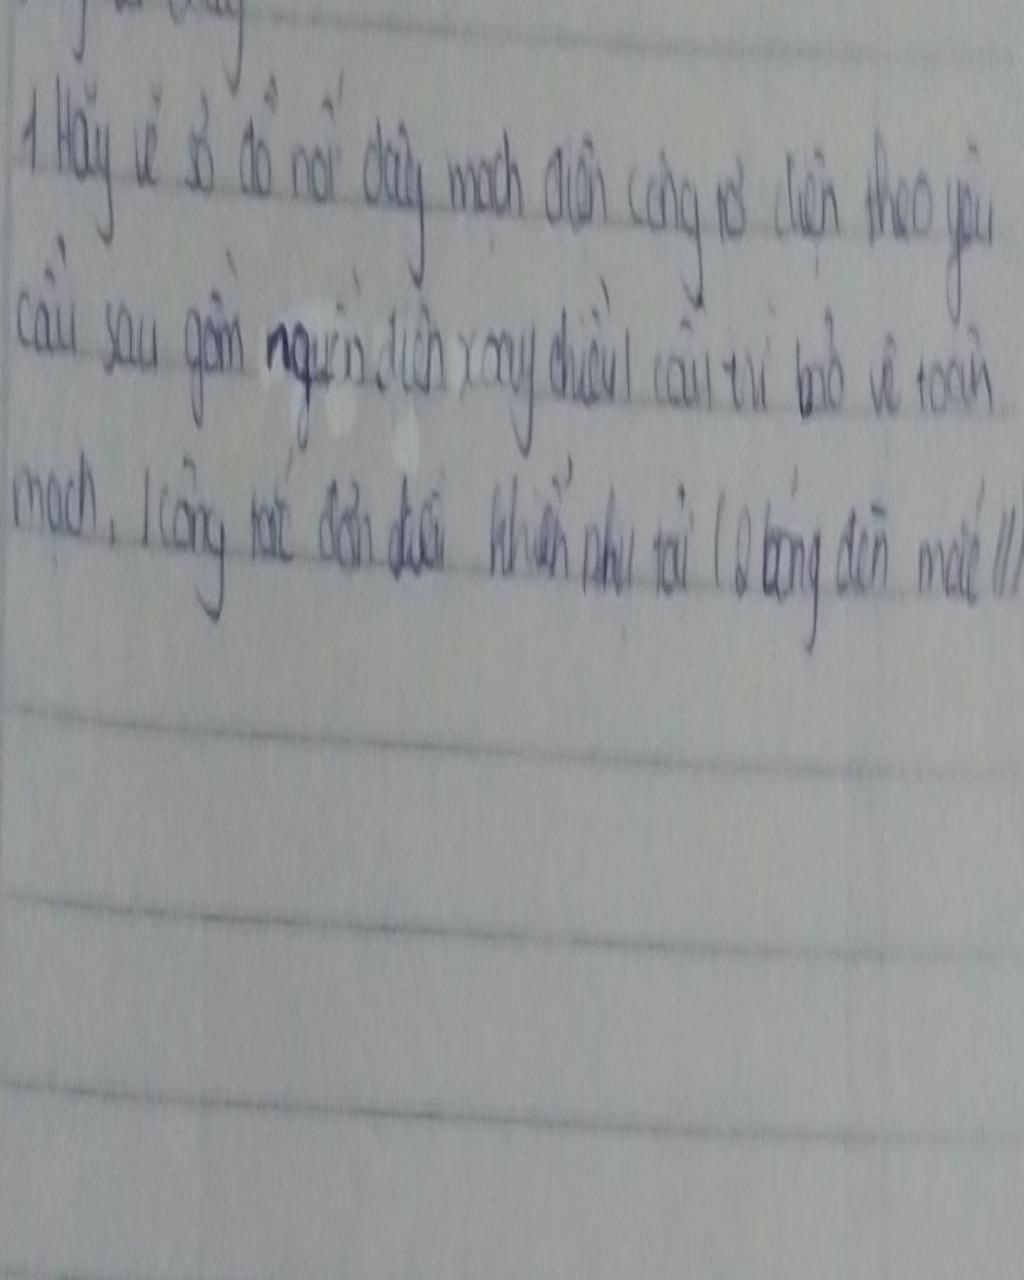 1 Hãy vẽ sơ đồ nối dây mạch điện công tơ điện theo yêu
cầu sau gồm nguồn điện xoay chiều 1 cầu chì bảo vệ toàn
mạch, 1 công tắc đơn điều khiển phụ tải (2 bóng đèn mắc //